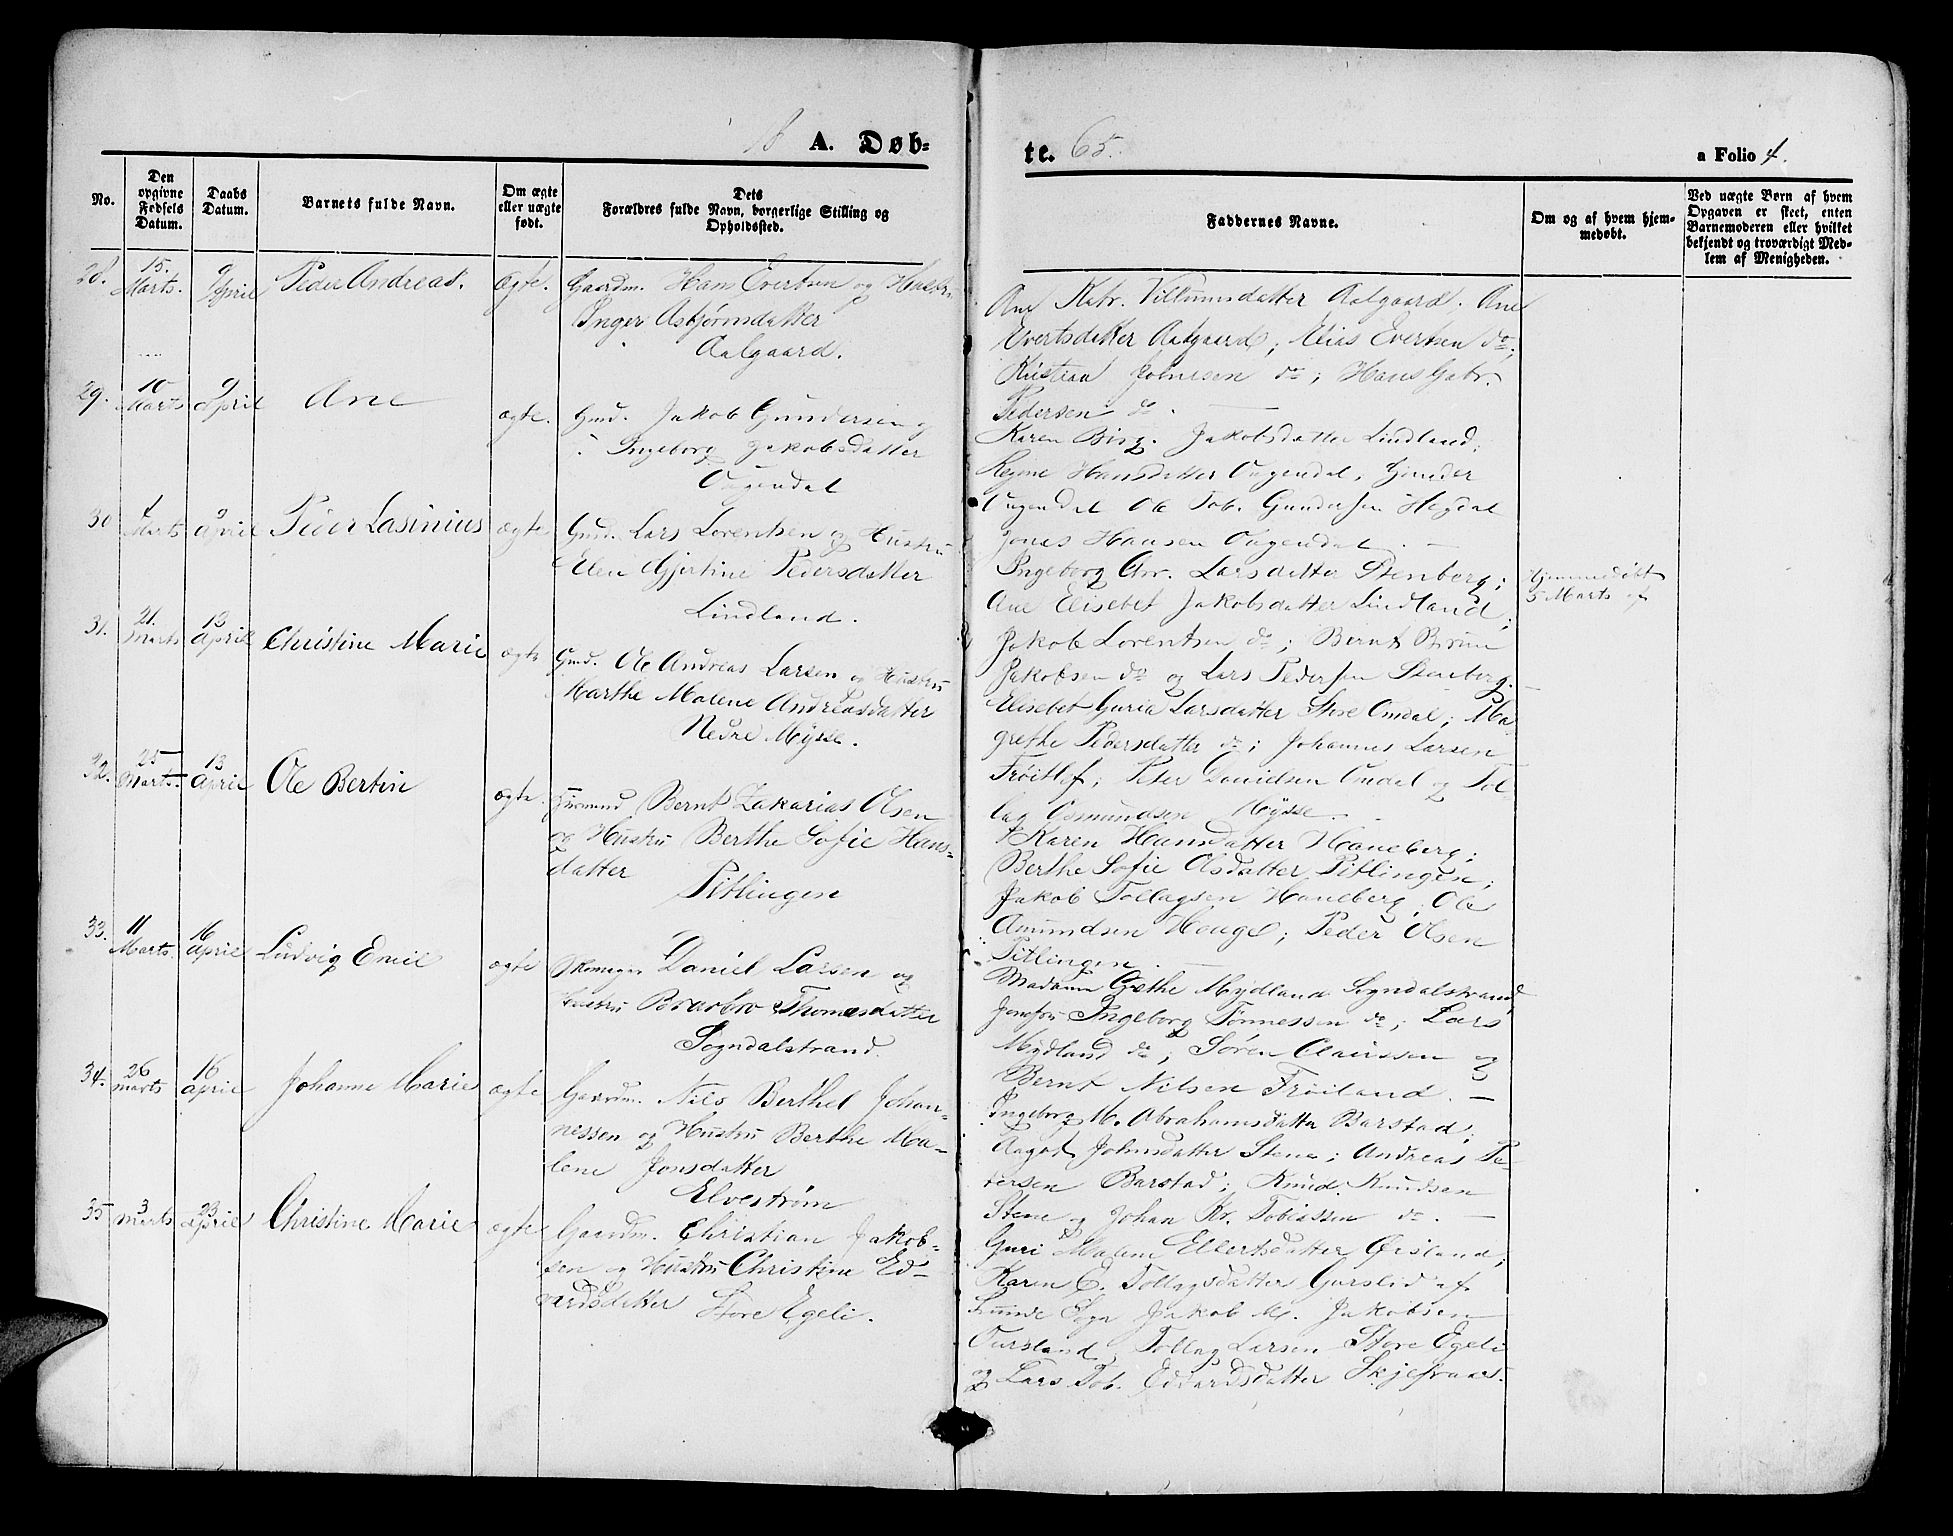 18 A. Døb-
te. 65.
a Folio 4.
No.
Den opgivne Fødsels Datum.
Daabs Datum.
Barnets fulde Navn.
Om ægte eller uægte født.
Dets
Forældres fulde Navn, borgerlige Stilling og
Opholdssted.
Faddernes Navne.
Om og af hvem hjem-
medøbt.
Ved uægte Børn af hvem
Opgaven er skeet, enten
Barnemoderen eller hvilket
bekjendt og troværdigt Med-
lem af Menigheden.
28. 15. Marts. 9 April Peder Andreas. ægte. Gaardm. Hans Evertsen og Hustru
Inger Asbjørnsdatter
Aalgaard.
Ane Katr. Villumsdatter Aalgaard. Ane
Evertsdatter Aalgaard; Elias Evertsen do;
Kristian Johnesen do; Hans Gabr.
Pedersen do.
29. 10 Marts 9 April Ane ægte. Gmd. Jakob Gundersen og
Ingeborg Jakobsdatter
Ougendal
Karen Birg. Jakobsdatter Lindland;
Regine Hansdatter Ougendal, Gunder
Ougendal Ole Tob. Gundersen Hegdal
Jonas Hansen Ougendal.
30 1 Marts 9 April Peder Lasinius ægte Gmd. Lars Lorentsen og Hustru
Elen Gjertine Pedersdatter
Lindland.
Ingeborg Chr. Larsdatter Stenberg;
Ane Elisebet Jakobsdatter Lindland;
Jakob Lorentsen do; Bernt Bruun
Jakobsen do og Lars Pedersen Stenberg.
Hjemmedøbt
5 Marts af
31. 21. Marts 13 April Christine Marie ægte Gmd. Ole Andreas Larsen og Hustru
Marthe Malene Andreasdatter
Nedre Mysse.
Elisebet Guria Larsdatter Store Omdal; Ma-
grethe Pedersdatter do; Johannes Larsen
Frøitlof; Peter Danielsen Omdal og Tol-
lag Osmundsen Mysse.
32. 25 Marts. 13 April Ole Bertin ægte. Huusmnd Bernt Zakarias Olsen
og Hustru Berthe Sofie Hans-
datter
Pitlingen
Karen Hansdatter Haneberg;
Berthe Sofie Olsdatter Pitlingen;
Jakob Tollagsen Haneberg, Ole
Amundsen Houge; Peder Olsen
Pitlingen.
33. 11 Marts 16 April Ludvig Emil ægte Skomager Daniel Larsen og
Hustru Braabro Thomasdatter
Sogndalstrand.
Madame Grethe Mydland Sogndalstrand,
Jomfru Ingeborg Tønnessen do; Lars
Mydland do; Søren Claussen og
Bernt Nilsen Frøiland.
34. 26 marts 16 April Johanne Marie ægte Gaardm. Nils Berthel Johan-
nessen og Hustru Berthe Ma-
lene Jonsdatter
Elvestrøm
Ingeborg M. Abrahamsdatter Barstad;
Aagot Johnsdatter Stene; Andreas Pe-
dersen Barstad; Knud Knudsen
Stene og Johan Kr. Tobiassen do.
35 3 marts 23 April Christine Marie ægte Gaardm. Christian Jakob-
sen og Hustru Christine Ed-
vardsdatter Store Egeli.
Guri Malene Ellertsdatter Ørsland,
Karen E. Tollagsdatter Gurslid af
Lunde Sogn Jakob M. Jakobsen
Oursland, Tollag Larsen Store Egeli
og Lars Tob. Edvardsdatter Skjefraas.